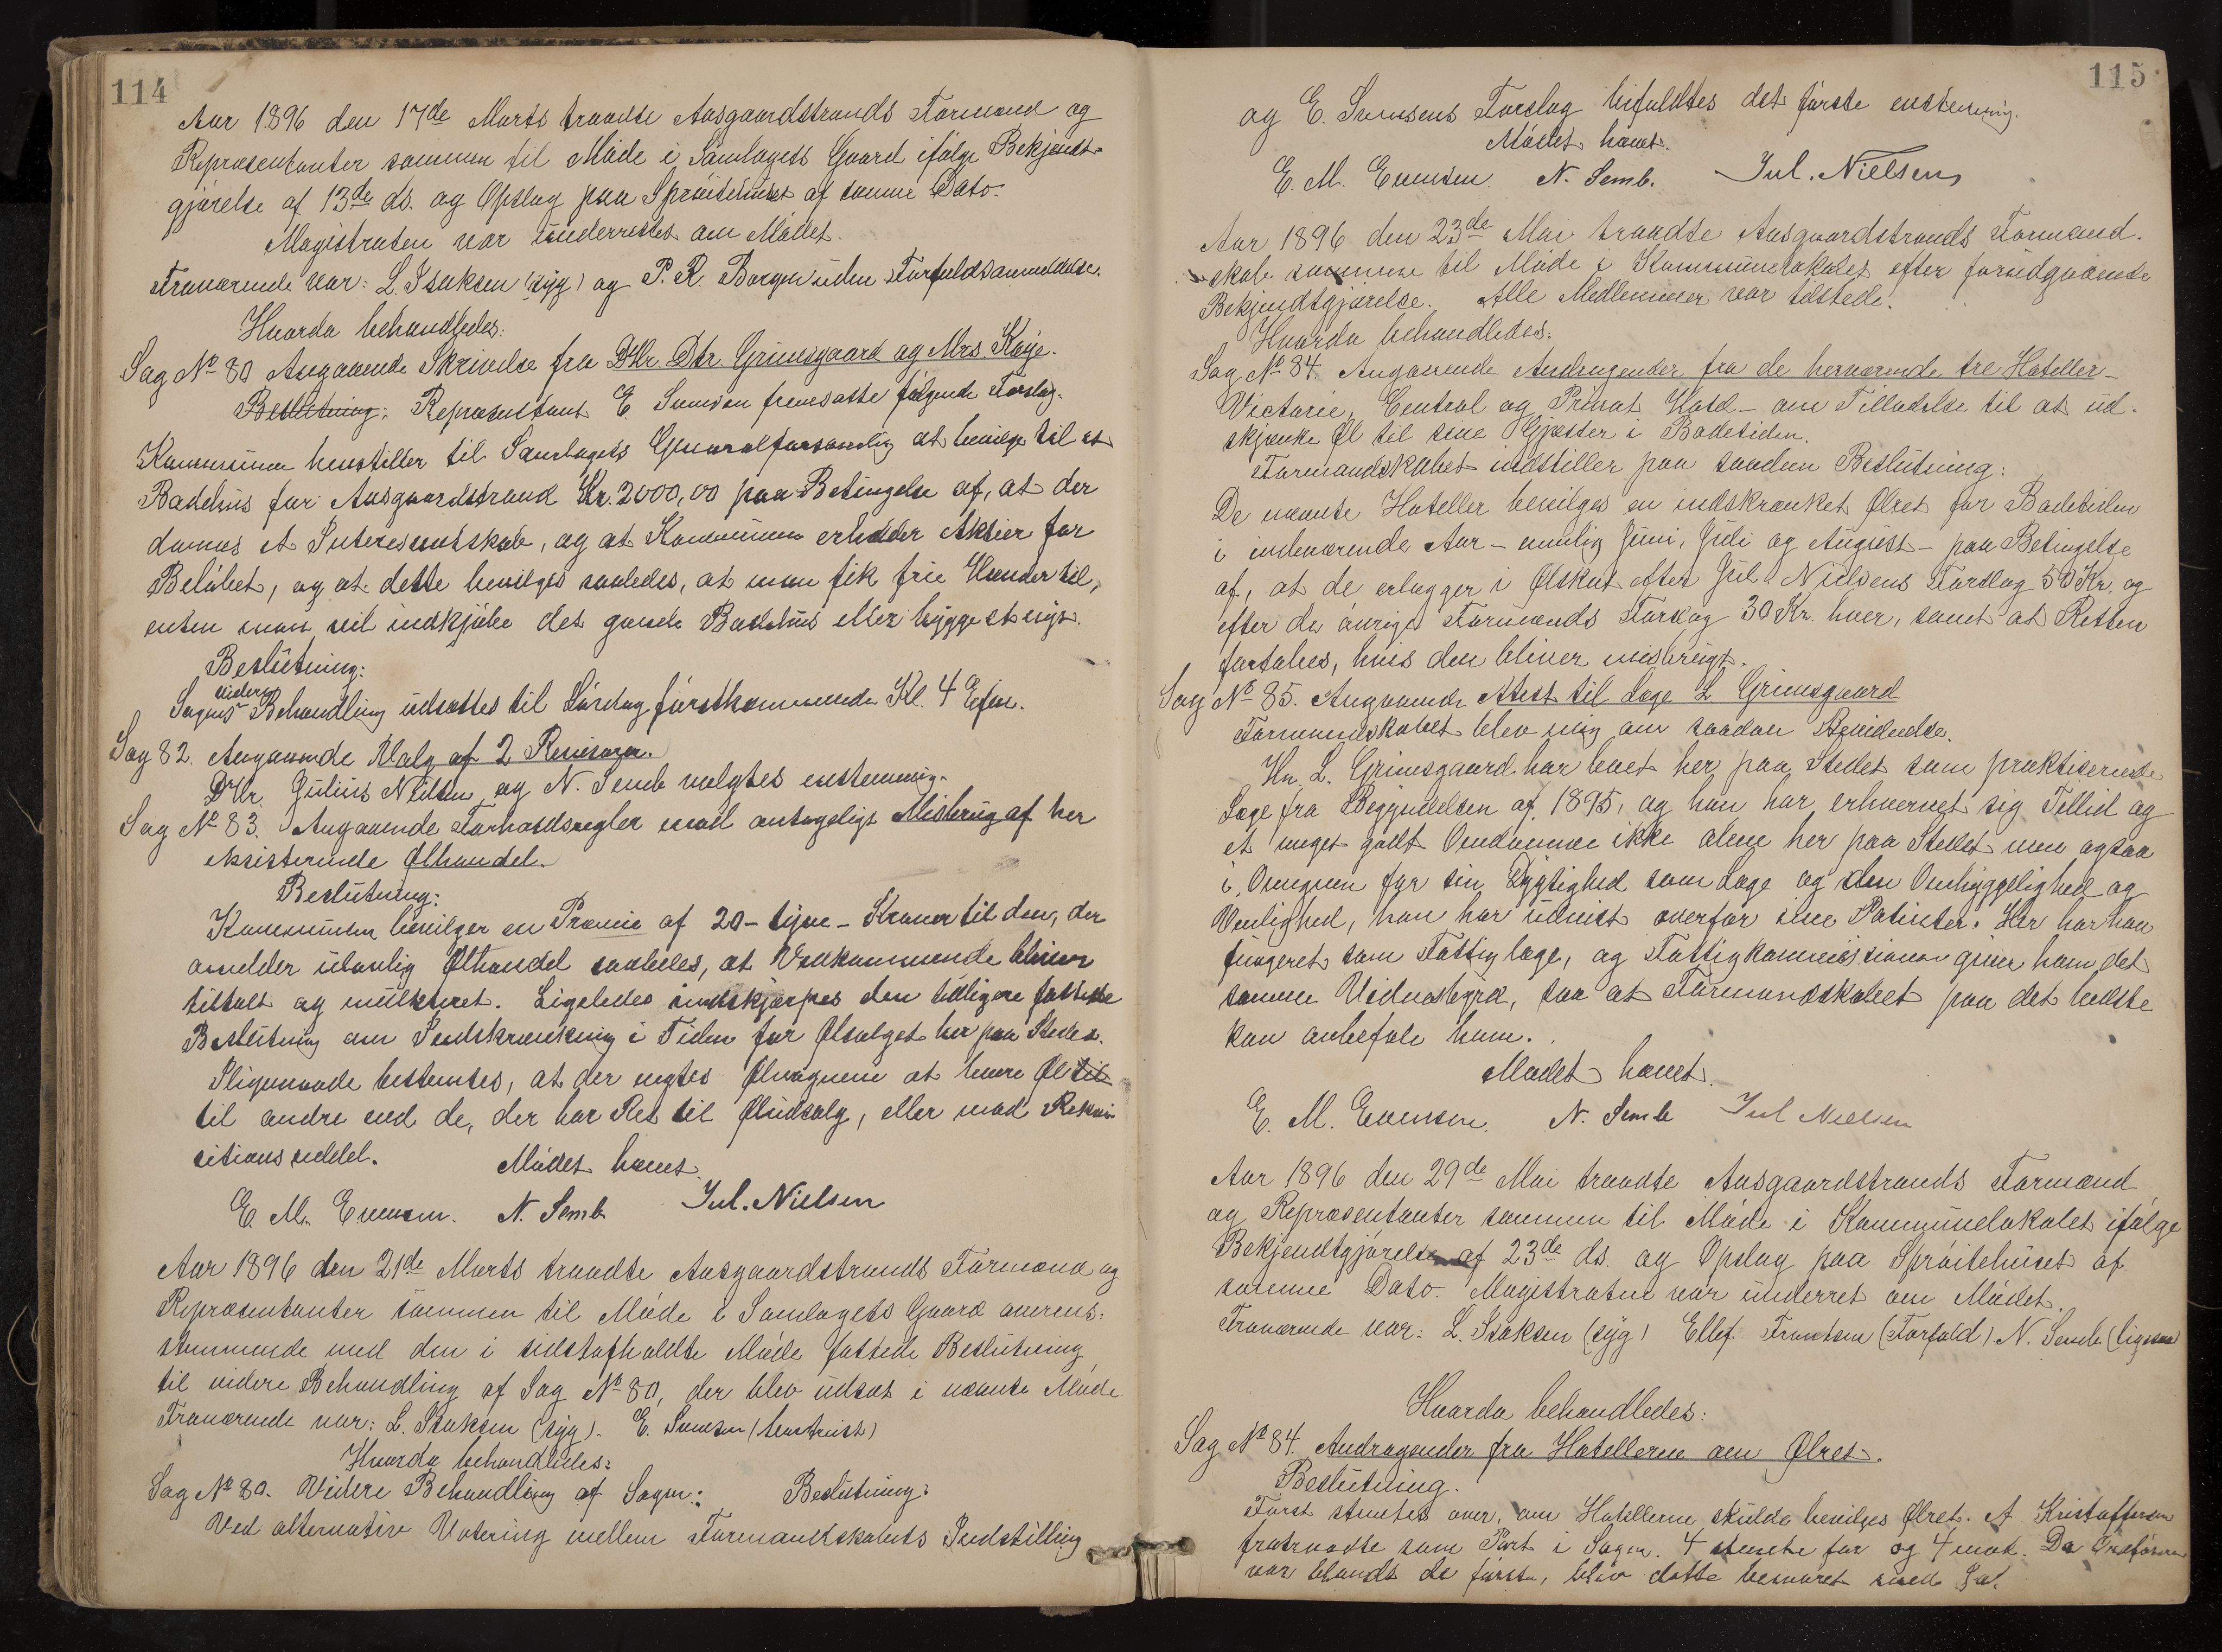 114
Aar 1896 den 17de Marts traadte Aasgaardstrands Formænd og
Repræsentanter sammen til Møde i Samlagets Gaard ifølge Bekjendt-
gjørelse af 13de ds. og Opslag paa Sprøitehuset af samme Dato.
Magistraten var underrettet om Mødet.
Fraværende var: L. Isaksen (syg) og P. R. Borgen uden Forfaldsanmeldelse.
Hvorda behandledes:
Sag No 80 Angaaende Skrivelse fra DHr. Dtr. Grimsgaard og Mrs. Kaye.
Beslutning: Repræsentant E fremsatte følgende Forslag.
Kommunen henstiller til Samlagets Generalforsamlig at bevilge til et
Badehus for Aasgaardstrand Kr. 2000,00 paa Betingelse af, at der
dannes et Interesentskab, og at Kommunen erholder Aktier for
Beløbet, og at dette bevilges saaledes, at man fik frie Hænder til,
enten man vil indkjøbe det gamle Badehus eller bygge et nyt.
Beslutning:
Sagens videre Behandling udsættes til Lørdag førstkommende Kl. 4 Efm.
Sag 82. Angaaende Valg af 2 Revisorer.
DHr. Julius Nielsen og N. Semb valgtes enstemmig.
Sag No 83. Angaaende Forholdsregler mod antageligt Misbrug af her
eksisterende Ølhandel.
Beslutning:
Kommunen bevilger en Præmie af 20 - tyve - Kroner til den, der
anmelder ulovlig Ølhandel saaledes, at Vedkommende bliver
tiltalt og mulkteret. Ligeledes indskjærpes den tidligere fattede
Beslutning om Indskrænkning i Tiden for Ølsalget her paa Stedet.
Sligemaade bestemtes, at der negtes Ølvognene at levere Øl til
til andre end de, der har Ret til Øludsalg, eller mod Rekvi-
sitionsseddel. Mødet hævet.
E. M. Evensen. N. Semb Jul. Nielsen
Aar 1896 den 21de Marts traadte Aasgaardstrands Formænd og
Repræsentanter sammen til Møde i Samlagets Gaard overens-
stemmende med den i sidstafholdte Møde fattede Beslutning
til videre Behandling af Sag No 80, der blev udsat i nævnte Møde.
Fraværende var: L. Isaksen (syg). E. (bortreist)
Hvorda behandledes:
Sag No 80. Videre Behandling af Sagen: Beslutning:
Ved alternativ Votering mellem Formandskabets Indstilling
115
og E. Forslag bifaldtes det første enstemmig.
Mødet hævet.
E. M. Evensen. N. Semb. Jul. Nielsen
Aar 1896 den 23de Mai traadte Aasgaardstrands Formand-
skab sammen til Møde i Kommunelokalet efter forudgaaende
Bekjendtgjørelse. Alle Medlemmer var tilstede.
Hvorda behandledes:
Sag No 84. Angaaende Andragender fra de herværende tre Hoteller -
Victoria, Central og Privat Hotel - om Tilladelse til at ud-
skjænke Øl til sine Gjæster i Badetiden.
Formandskabet indstiller paa saadan Beslutning:
De nævnte Hoteller bevilges en indskrænket Ølret for Badetiden
i indeværende Aar - nemlig Juni, Juli og August - paa Betingelse
af, at de erlægger i Ølskat efter Jul. Nielsens Forslag 50 Kr. og
efter de øvrige Formænds Forslag 30 Kr. hver, samt at Retten
fortabes, hvis den bliver misbrugt.
Sag No 85. Angaaende Attest til Læge L. Grimsgaard
Formandskabet blev enig om saadan Bevidnelse.
Hr. L. Grimsgaard har boet her paa Stedet som praktiserende
Læge fra Begyndelsen af 1895, og han har erhvervet sig Tillid og
et meget godt Omdømme ikke alene her paa Stedet men ogsaa
i Omegnen for sin Dygtighed som Læge og den Omhyggelighed og
Venlighed, han har udvist overfor sine Patienter. Her har han
fungeret som Fattiglæge, og Fattigkommissionen giver ham det
samme Vidnesbyrd, saa at Formandskabet paa det bedste
kan anbefale ham.
Mødet hævet.
E. M. Evensen. N. Semb Jul Nielsen
Aar 1896 den 29de Mai traadte Aasgaardstrands Formænd
og Repræsentanter sammen til Møde i Kommunelokalet ifølge
Bekjendtgjørelse af 23de ds. og Opslag paa Sprøitehuset af
samme Dato. Magistraten var underret om Mødet.
Fraværende var: L. Isaksen (syg) Ellef (Forfald) N. Semb (ligesaa)
Hvorda behandledes:
Sag No 84. Andragender fra Hotellerne om Ølret.
Beslutning.
Først stemtes over, om Hotellerne skulde bevilges Ølret. A Kristoffersen
fratraadte som Part i Sagen. 4 stemte for og 4 mod. Da Ordføreren
var blandt de første, blev dette besvaret med Ja.